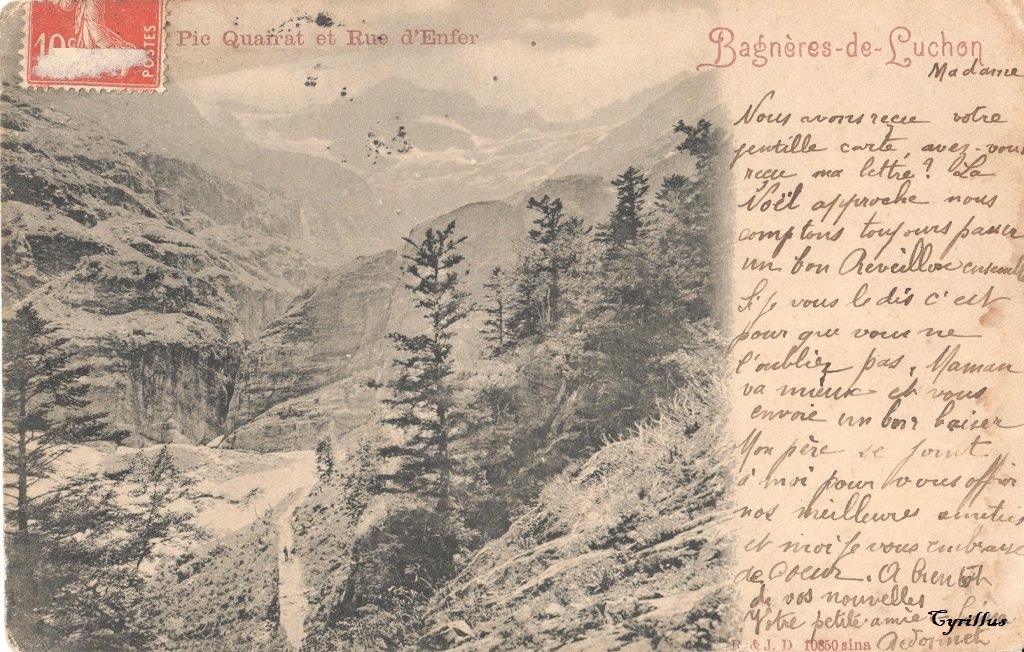 10c
POSTES
Pic Quairat et Rue d'Enfer
Bagnères-de-Luchon
Madame
Nous avons reçue votre
gentille carte, avez-vous
reçue ma lettre? La
Noël approche nous
comptons toujours passer
un bon Réveillon ensemble
Si je vous le dis c'est
pour que vous ne
l'oubliez pas. Maman
va mieux et vous
envoie un bon baiser
Mon père se joint
à moi pour vous offrir
nos meilleures amitiés
et moi je vous embrasse
de Coeur. A bientôt
de vos nouvelles
Votre petite amie
Cyrillus
& J. D. 10850 sina